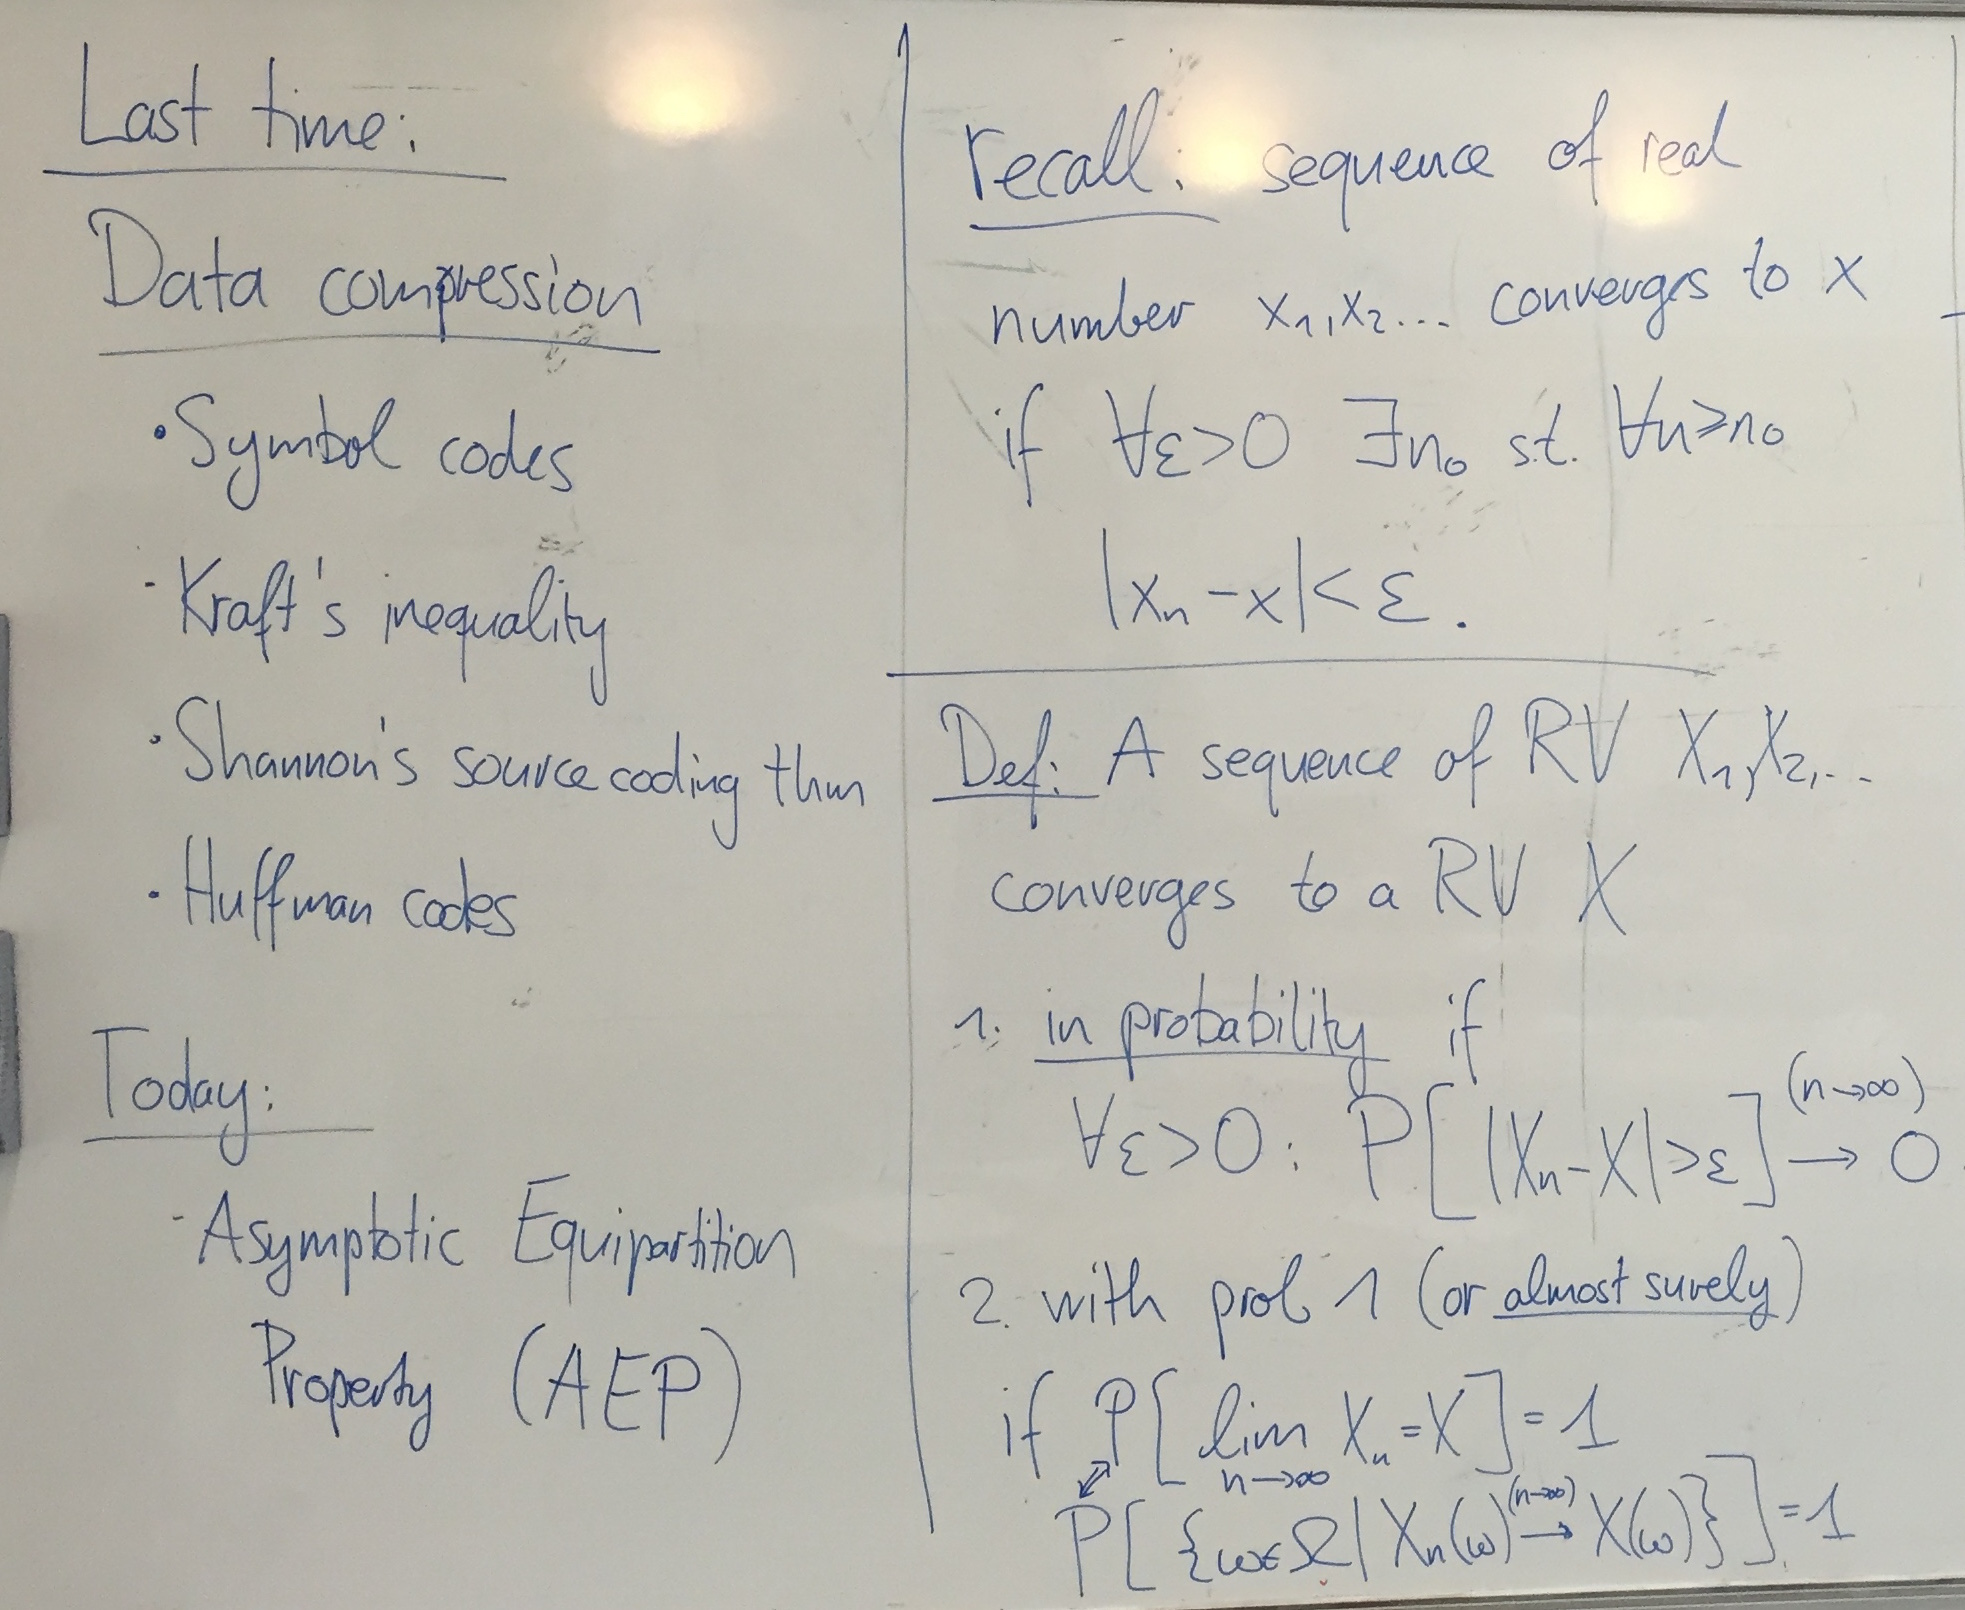 Last time:
Data compression
• Symbol codes
· Kraft's inequality
· Shannon's source coding thm
· Huffman codes
Today:
- Asymptotic Equipartition
Property (AEP)
recall: sequence of real
number x₁,x₂... converges to x
if ∀ε>0 ∃n₀ s.t. ∀n≥n₀
|xₙ-x|<ε.
Def: A sequence of RV X₁,X₂,...
converges to a RV X
1. in probability if
∀ε>0: P[|Xₙ-X|>ε] →(n→∞) 0.
2. with prob 1 (or almost surely)
if P[lim n→∞ Xₙ=X]=1
⇕
P[{ω∈Ω|Xₙ(ω) →(n→∞) X(ω)}]=1